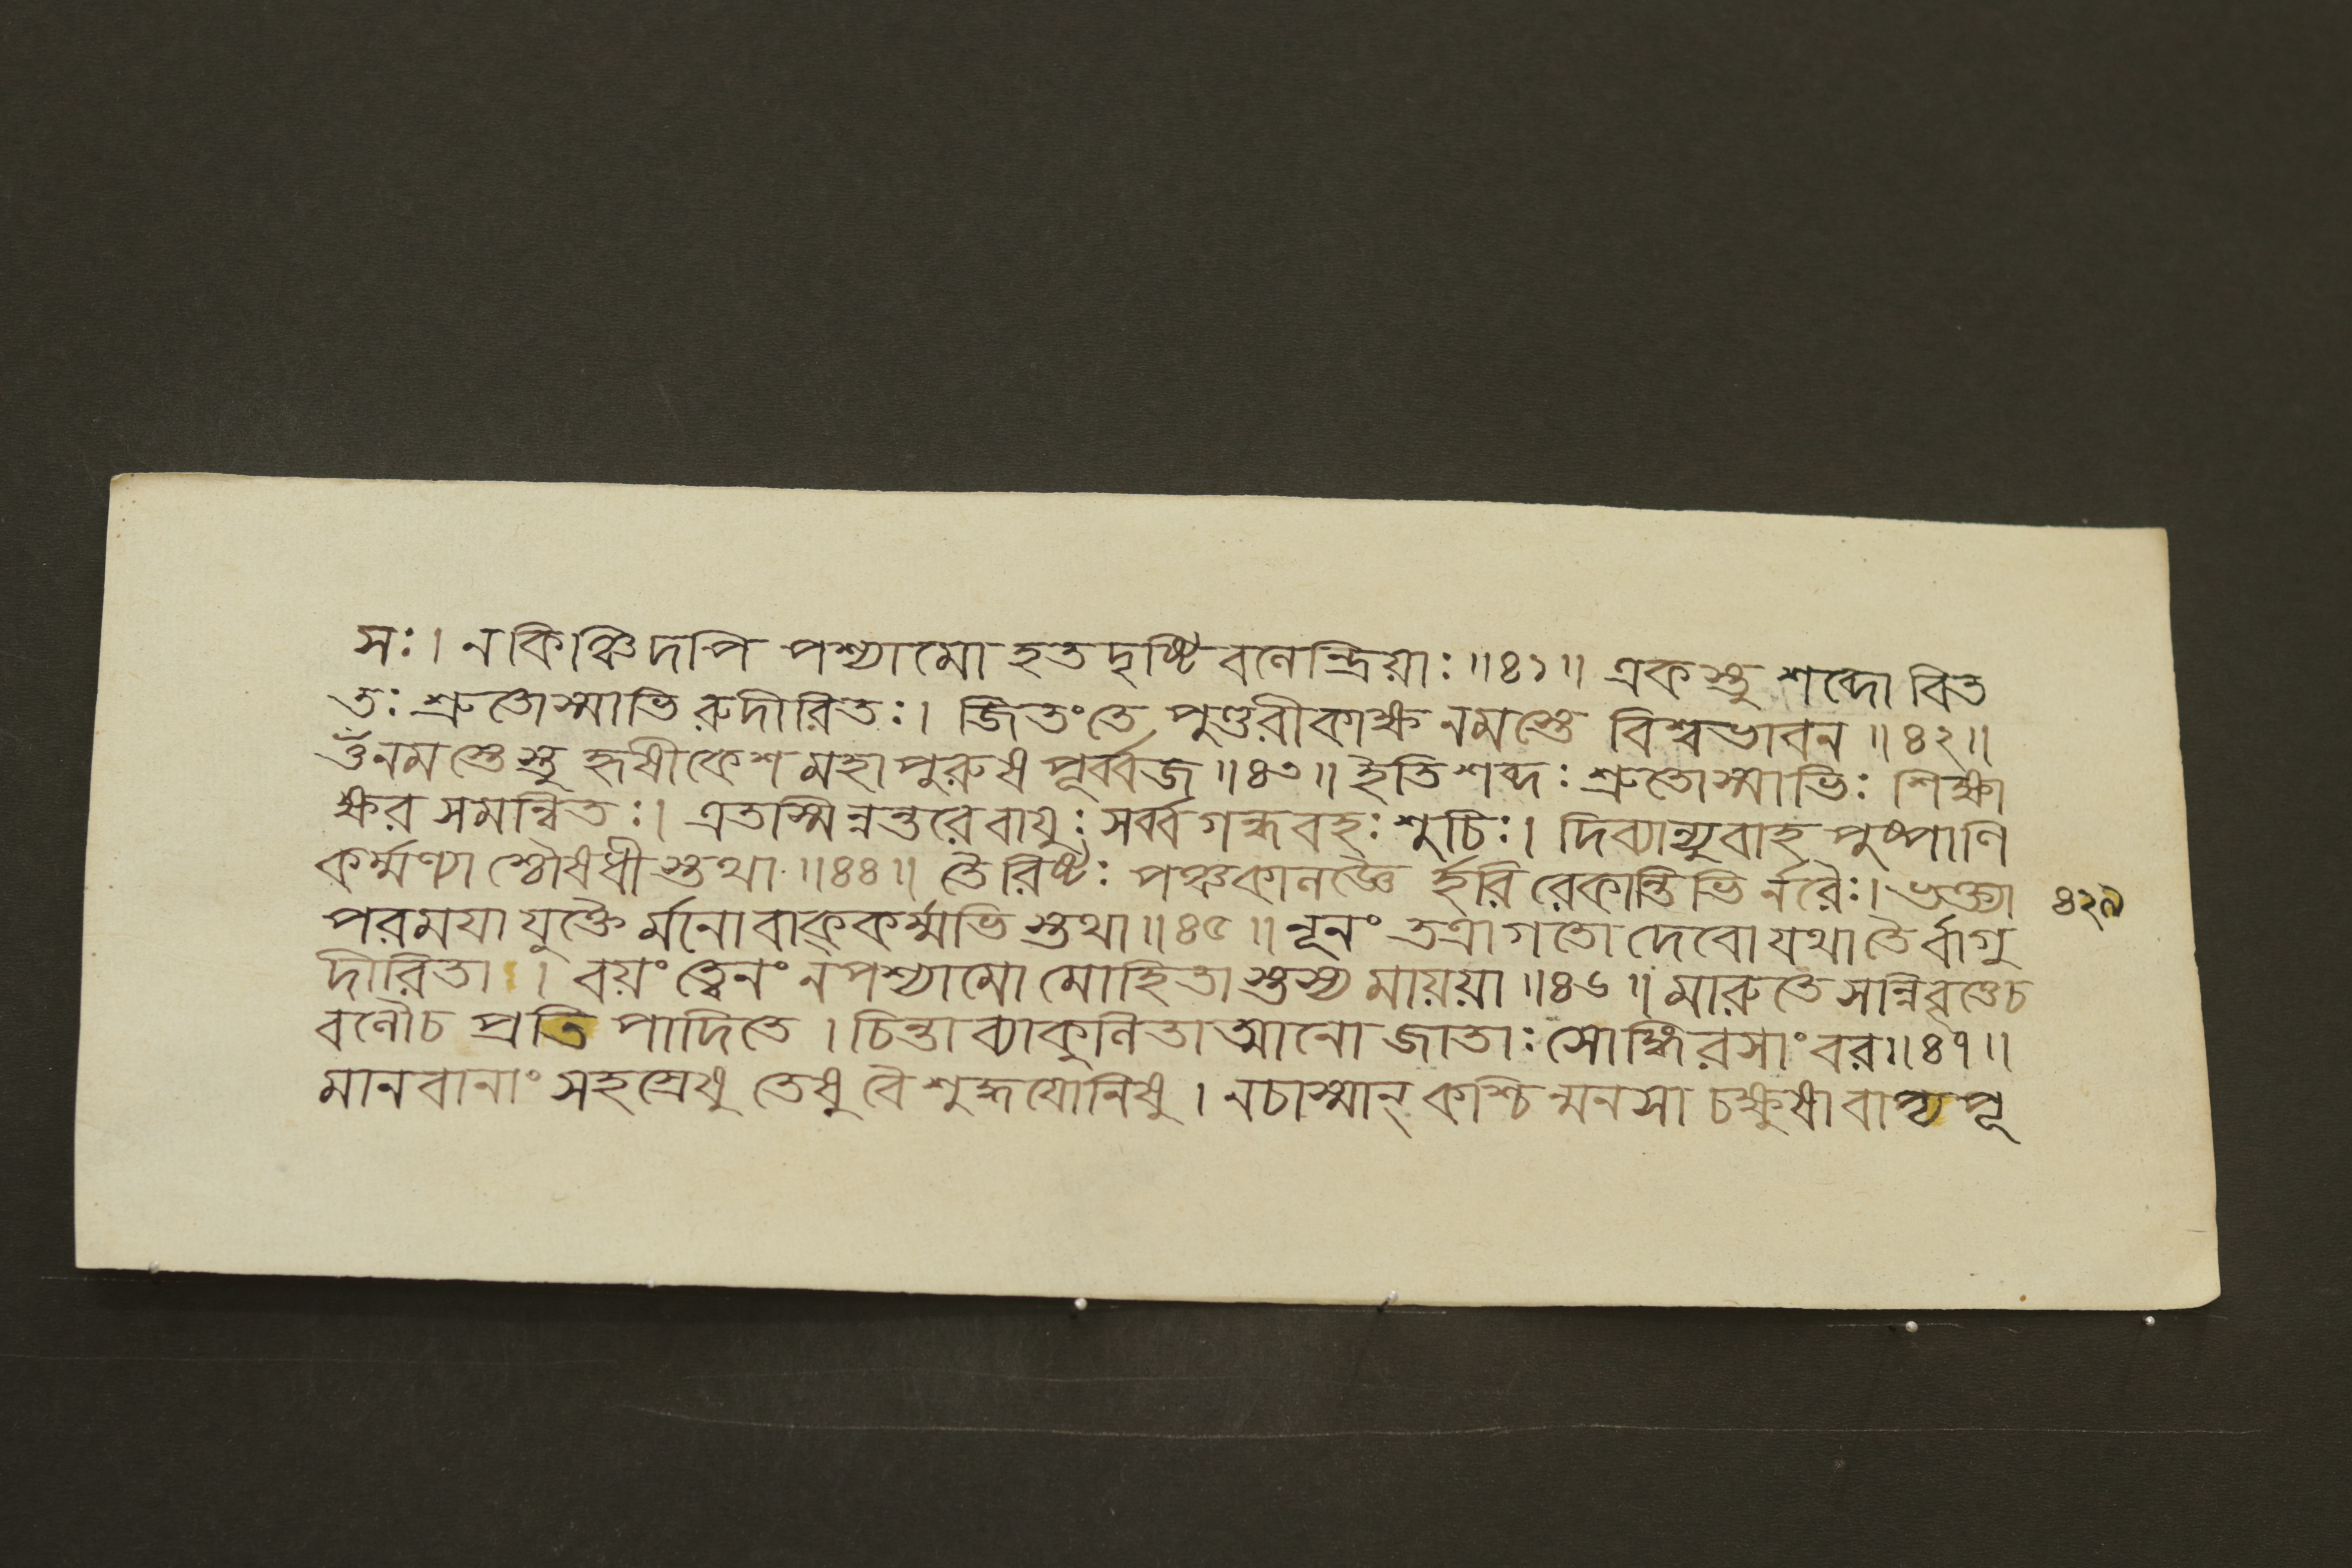 সঃ। ন কিঞ্চিদপি পশ্যামো হতদৃষ্টিবলেন্দ্রিয়াঃ॥৪১॥ একস্তু শব্দো বিত
তঃ শ্রুতোস্মাভিরুদীরিতঃ। জিতংতে পুণ্ডরীকাক্ষ নমস্তে বিশ্বভাবন॥৪২॥
ওঁনমস্তেস্তু হৃষীকেশ মহাপুরুষ পূর্ব্বজ॥৪৩॥ ইতি শব্দঃ শ্রুতোস্মাভিঃ শিক্ষা
ক্ষরসমন্বিতঃ। এতস্মিন্নন্তরে বায়ুঃ সর্ব্বগন্ধবহঃ শুচিঃ। দিব্যান্যুবাহ পুষ্পাণি
কর্ম্মণ্যাশ্চৌষধীস্তথা॥৪৪॥ তৈরিষ্টঃ পঞ্চকালজ্ঞৈর্হরিরেকান্তিভির্নরৈঃ। ভক্ত্যা
৪২৯
পরময়া যুক্তৈর্মনোবাক্কর্ম্মভিস্তথা॥৪৫॥ নূনং তত্রাগতো দেবো যথা তৈর্বাগু
দীরিতা। বয়ং ত্বেনং ন পশ্যামো মোহিতাস্তস্য মায়য়া॥৪৬॥ মারুতে সন্নিবৃত্তেচ
বলৌচ প্রতিপাদিতে। চিন্তাব্যাকুলিতাত্মানো জাতাঃ স্মোঙ্গিরসাংবর॥৪৭॥
মানবানাং সহস্রেষু তেষু বৈ শুদ্ধযোনিষু। নচাস্মান্ কশ্চিন্মনসা চক্ষুষা বাপ্যপূ